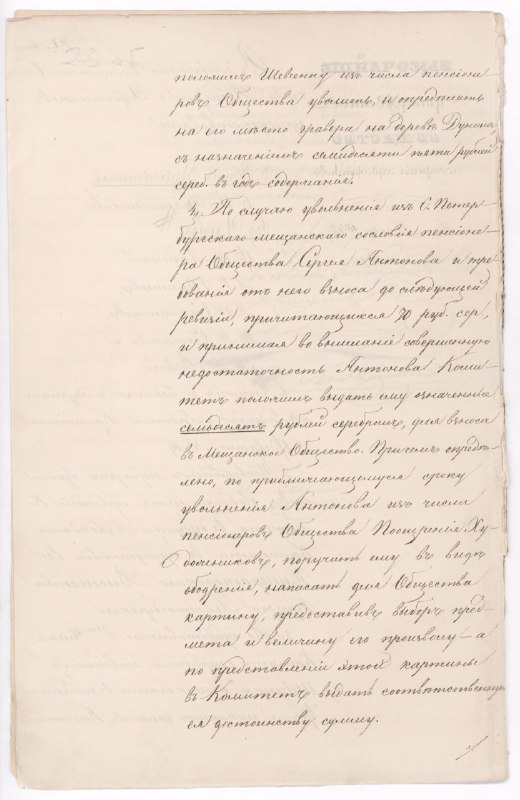 положилъ Шевченку изъ числа пенсіоне-
ровъ Общества уволить, и опредѣлить
на его мѣсто гравера на деревѣ
съ назначеніемъ семидесяти пяти рублей
сереб. въ годъ содержанія.
4, По случаю увольненія изъ С. Петер-
бургскаго мещанскаго сословія пенсіоне-
ра Общества Сергея Антонова и тре-
бованія отъ него взноса до слѣдующей
ревизіи, причитающихся 70 руб. сер,
и принимая во вниманіе совершенную
недостаточность Антонова Коми-
тетъ положилъ выдать ему означенные
семьдесятъ рублей серебромъ, для взноса
въ Мещанское Общество. Причемъ опредѣ-
лено, по приближающемуся сроку
увольненія Антонова изъ числа
пенсіонеровъ Общества Поощренія Ху-
дожниковъ, поручить ему въ видѣ
ободренія, написать для Общества
картину, предоставивъ выборъ пред-
мета и величину его произволу – а
по представленіи этой картины
въ Комитетъ выдать соотвѣтственную
ея достоинству сумму.